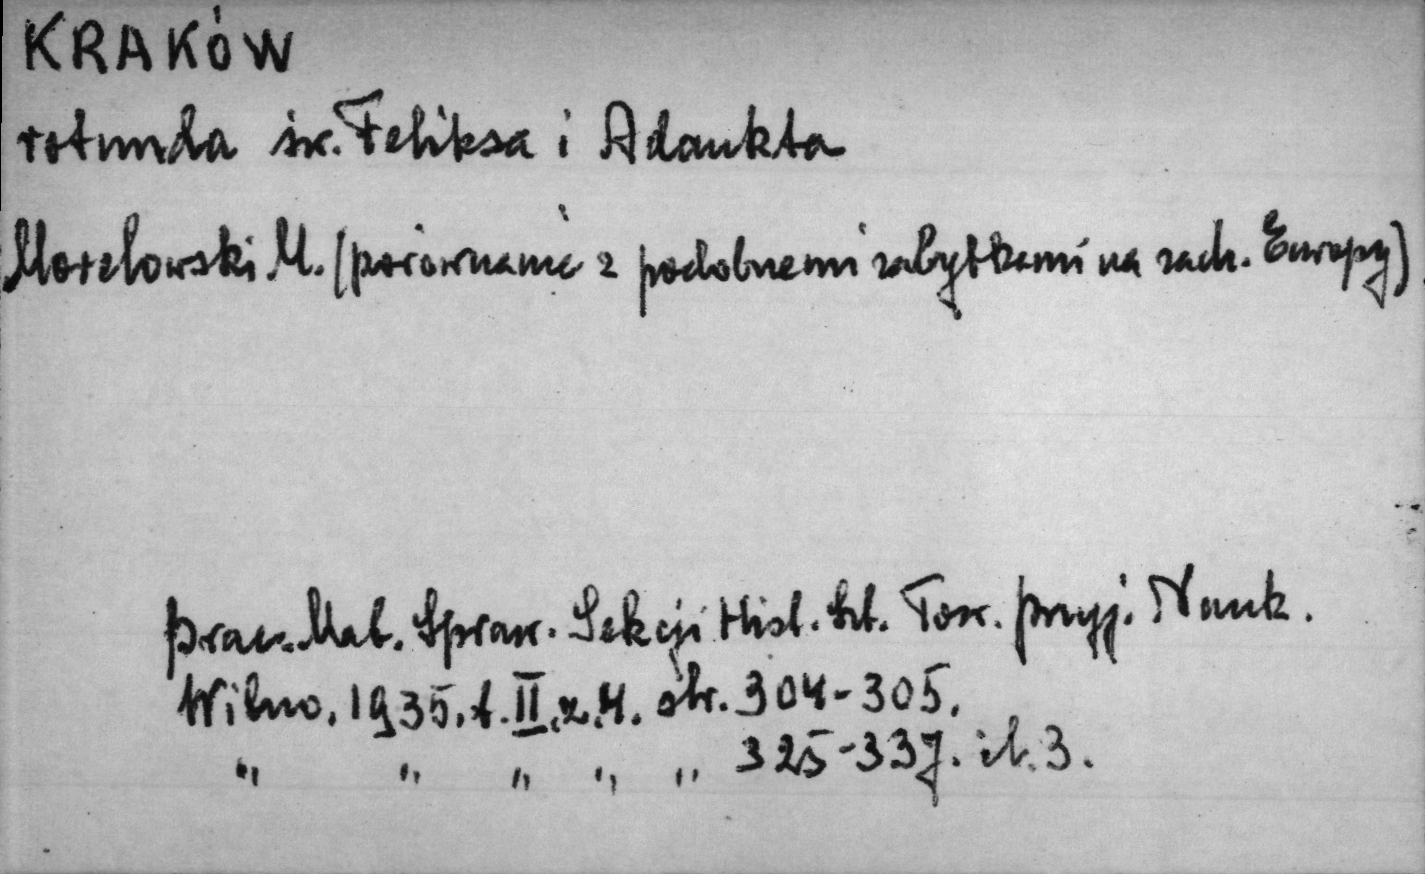 KRAKÓW
rotunda św. Feliksa i Adaukta
Morelowski M. (porównanie z podobnemi zabytkami na zach. Europy)
Prac. Mat. Spraw. Sekcji Hist. Szt. Tow. przyj. Nauk.
Wilno. 1935. t. II. z. 4. str. 304-305.
" " " " " 325-337. il. 3.